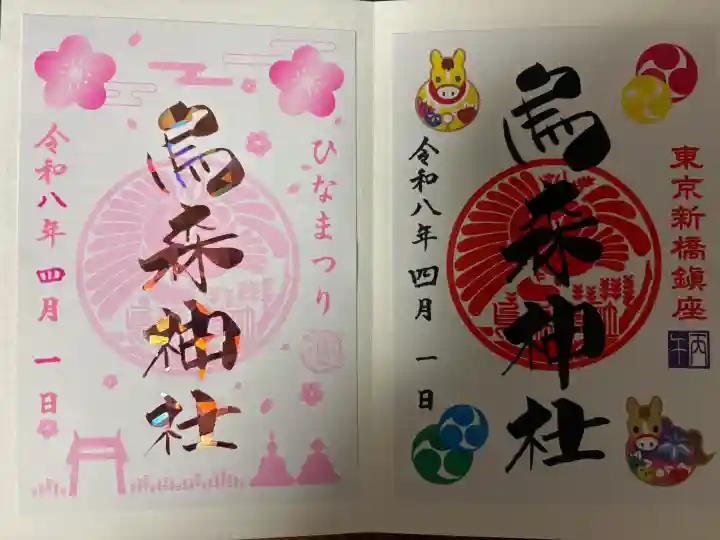 ひなまつり
烏森神社
令和八年四月一日
東京新橋鎮座
丙午
烏森神社
令和八年四月一日